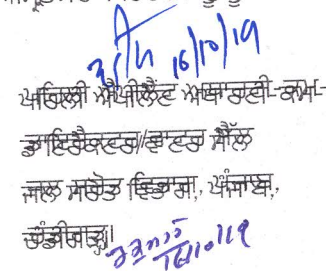 16/10/19
ਪਹਿਲੀ ਐਪੀਲੈਂਟ ਅਥਾਰਟੀ-ਕਮ-
ਡਾਇਰੈਕਟਰ/ਵਾਟਰ ਸੈੱਲ
ਜਲ ਸਰੋਤ ਵਿਭਾਗ, ਪੰਜਾਬ,
ਚੰਡੀਗੜ੍ਹ।
16/10/19